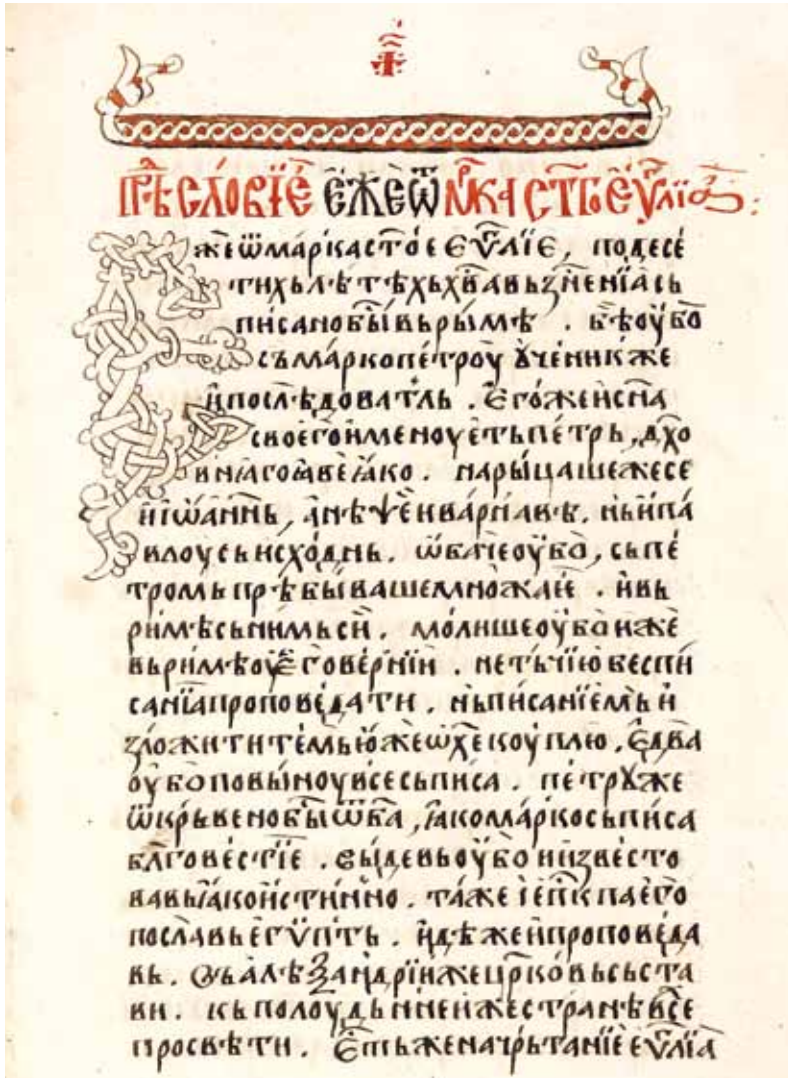 прѣⷣсло́вїе є҆́же ѿ мⷬ҇ка ст҃го є҆ѵⷢ҇лїа
же ѿ ма́рка ст҃о́е є҆ѵⷢ҇лїе, по десе́
тихь лѣ́тѣхь хв҃а вьзнⷭ҇енїа сь
пи́сано бы́ⷭ вь ры́мѣ . бѣ оу҆́бо
съ ма́рко пе́троу ꙋ҆чени́к же
и҆ послѣ́доватⷧ҇ь . є҆го́же и҆ сн҃а
своего̀ и҆меноу́еть пе́трь, дх҃о
внаго ꙗ҆́ве ꙗ҆́ко . нарыцаше же се
и҆ і҆ѡа́ннь, а҆нѣѱе́и варна́вѣ . нь и҆ па́
влоу сьисхо́днь . ѡ҆ба́че оу҆́бо, сь пе́
тромь прѣбы́ваше мно́жає . и҆ вь
ри́мѣ сь ни́мь си́ . мо́лише оу҆́бо и҆́же
вь ри́мѣ оу҆ е҆го̀ ве́рнїи . не ть́чїю бес пи
са́нїа пропове́дати . нь писа́нїемь и҆
зло́жити те́мь ю҆́же ѡ҆ хѣ коу́плю . є҆два̀
оу҆́бо повы́ноу все сьписа . пе́трꙋ же
ѿкръ́вено бы́ⷭ ѿ ба҃, ꙗ҆́ко ма́рко сьпи́са
бл҃гове́стїе . вы́девь оу҆́бо и҆ и҆зве́сто
вавь ꙗ҆́ко и҆́стинно . та́же і҆ є҆пⷭ҇кпа е҆го̀
посла̀ вь є҆гѵ́пть . и҆дѣ́же и҆ пропове́да
вь . ѹ҆ а҆леѯа́ндрїи же цр҃ковь сьста
ви . кь полоу́дьнней же странѣ̀ все̑
просвѣ́ти . є҆́сть же начръта́нїе є҆ѵⷢ҇лїа